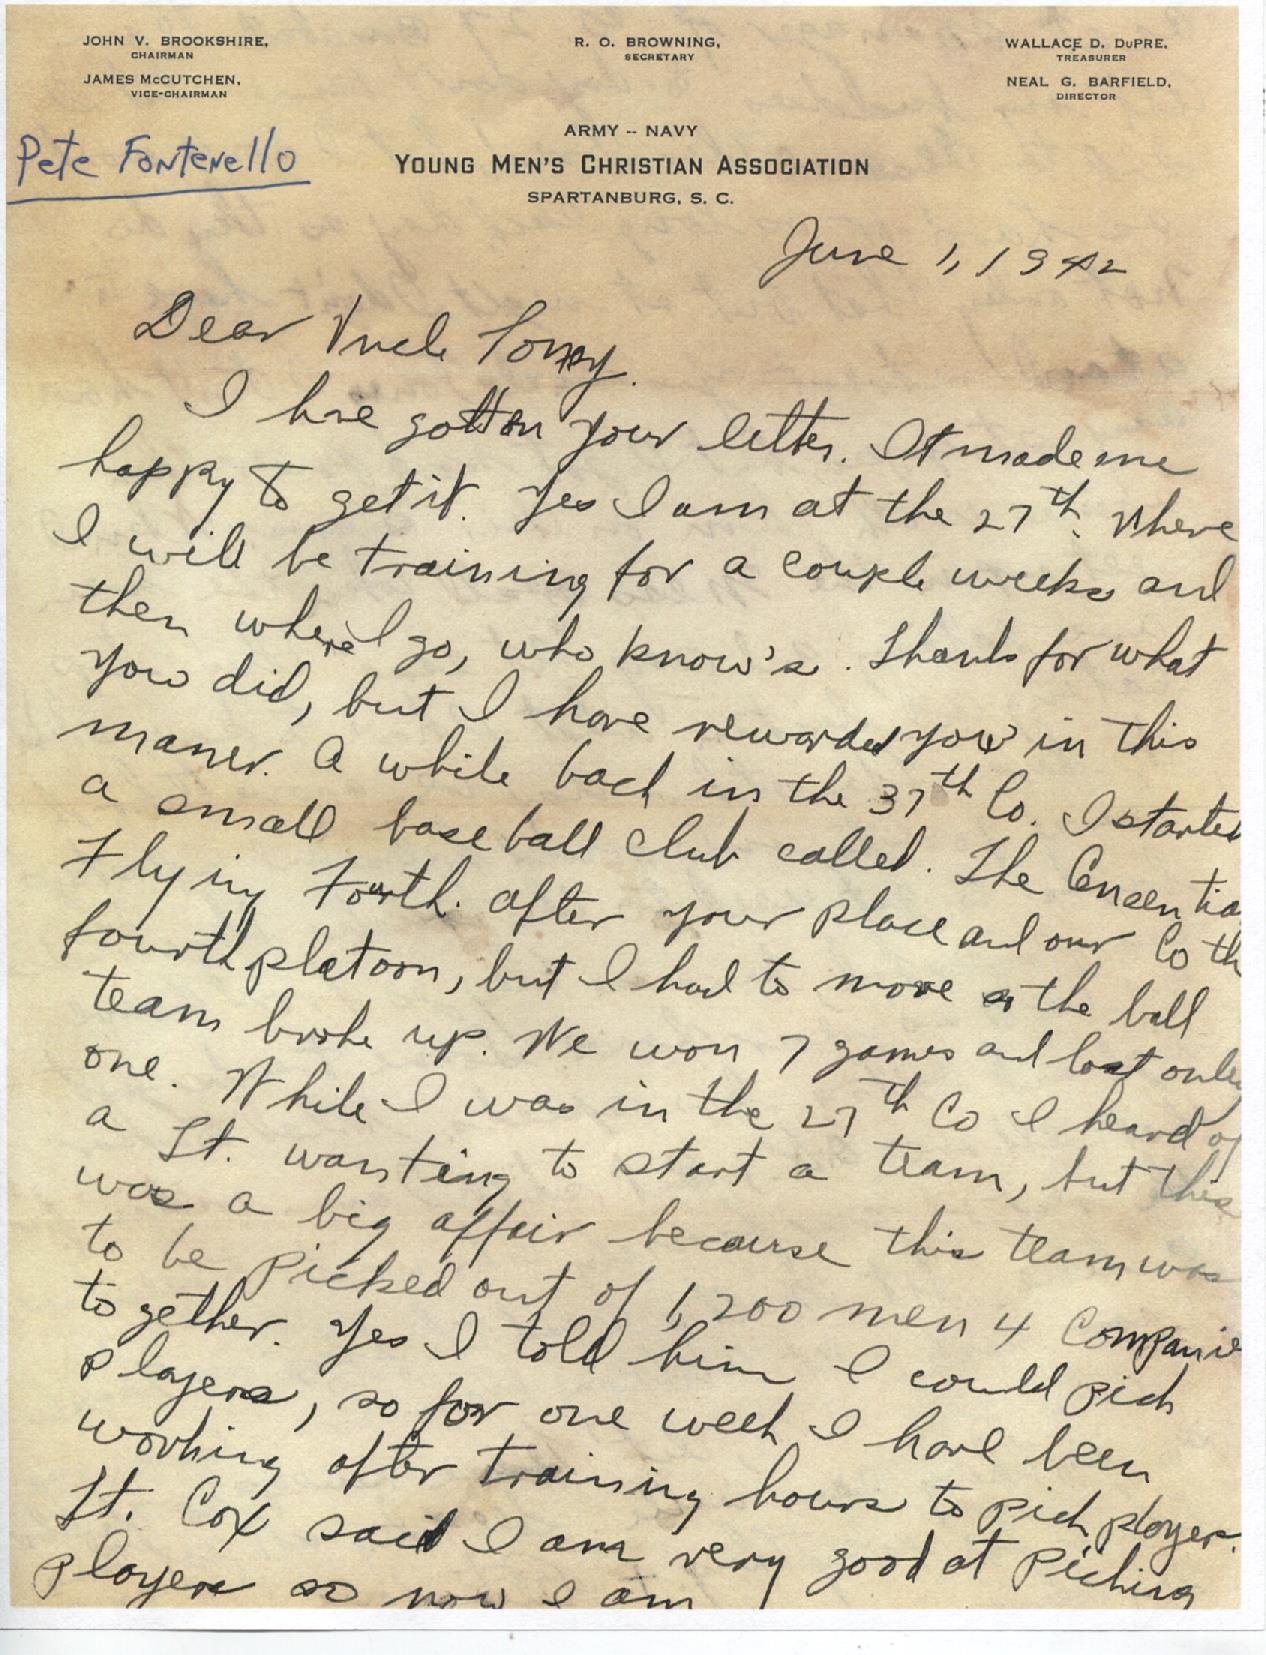 JOHN V. BROOKSHIRE,
CHAIRMAN
JAMES McCUTCHEN,
VICE-CHAIRMAN
R. O. BROWNING,
SECRETARY
WALLACE D. DuPRE,
TREASURER
NEAL G. BARFIELD,
DIRECTOR
Pete Fontenello
ARMY -- NAVY
YOUNG MEN'S CHRISTIAN ASSOCIATION
SPARTANBURG, S. C.
June 1, 1942
Dear Uncle Tony.
I have gotton your letter. It made me
happy to get it. Yes I am at the 27th. Where
I will be training for a couple weeks and
then where I go, who know's. Thanks for what
you did, but I have rewarded you in this
maner. A while back in the 37th Co. I started
a small baseball club called. The
Flying Fourth. after your place and our Co th
fourth platoon, but I had to move & the ball
team broke up. We won 7 games and lost only
one. While I was in the 27th Co I heard of
a Lt. wanting to start a team, but this
was a big affair because this team was
to be picked out of 1,200 men 4 Companie
together. Yes I told him I could pick
players, so for one week I have been
working after training hours to pick player.
Lt. Cox said I am very good at picking
players so now I am